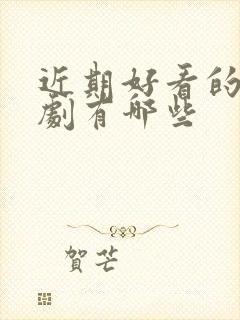 近期好看的
劇有哪些
賀芒